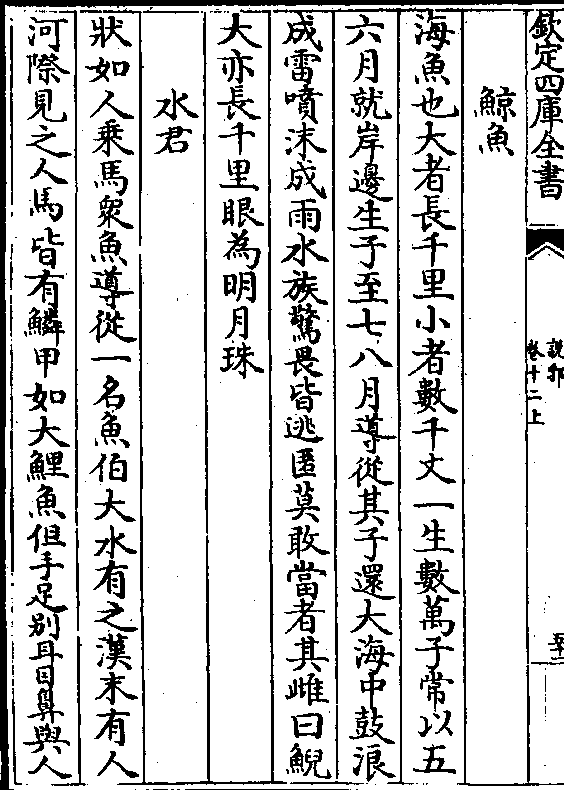 欽定四庫全書
說郛
卷十二上
鯨魚
海魚也大者長千里小者數千丈一生數萬子常以五
六月就岸邊生子至七八月導從其子還大海中鼓浪
成雷噴沫成雨水族驚畏皆逃匿莫敢當者其雌曰鯢
大亦長千里眼為明月珠
水君
狀如人乗馬衆魚導從一名魚伯大水有之漢末有人
河際見之人馬皆有鱗甲如大鯉魚但手足别耳目鼻與人